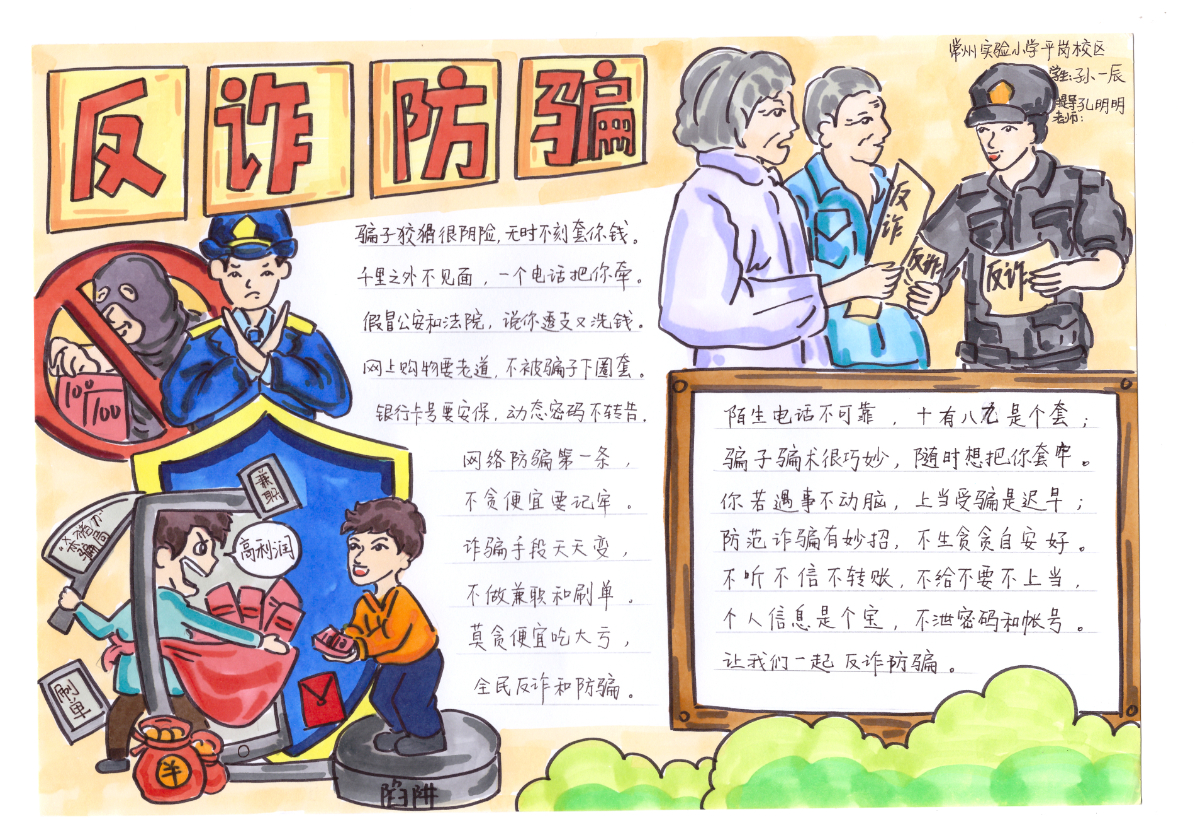 反诈防骗
常州实验小学平岗校区
学生:孙一辰
指导老师:孔明明
骗子狡猾很阴险,无时不刻套你钱。
千里之外不见面,一个电话把你牵。
假冒公安和法院,诡你透支又洗钱。
网上购物要老道,不被骗子下圈套。
银行卡号要安保,动态密码不转告.
网络防骗第一条,
不贪便宜要记牢。
诈骗手段天天变,
不做兼职和刷单。
莫贪便宜吃大亏,
全民反诈和防骗。
反诈
反诈
反诈
陌生电话不可靠,十有八九是个套;
骗子骗术很巧妙,随时想把你套牢。
你若遇事不动脑,上当受骗是迟早;
防范诈骗有妙招,不生贪贪自安好。
不听不信不转账,不给不要不上当,
个人信息是个宝,不泄密码和帐号。
让我们一起反诈防骗。
100
100
兼职
高利润
刷单
陷阱